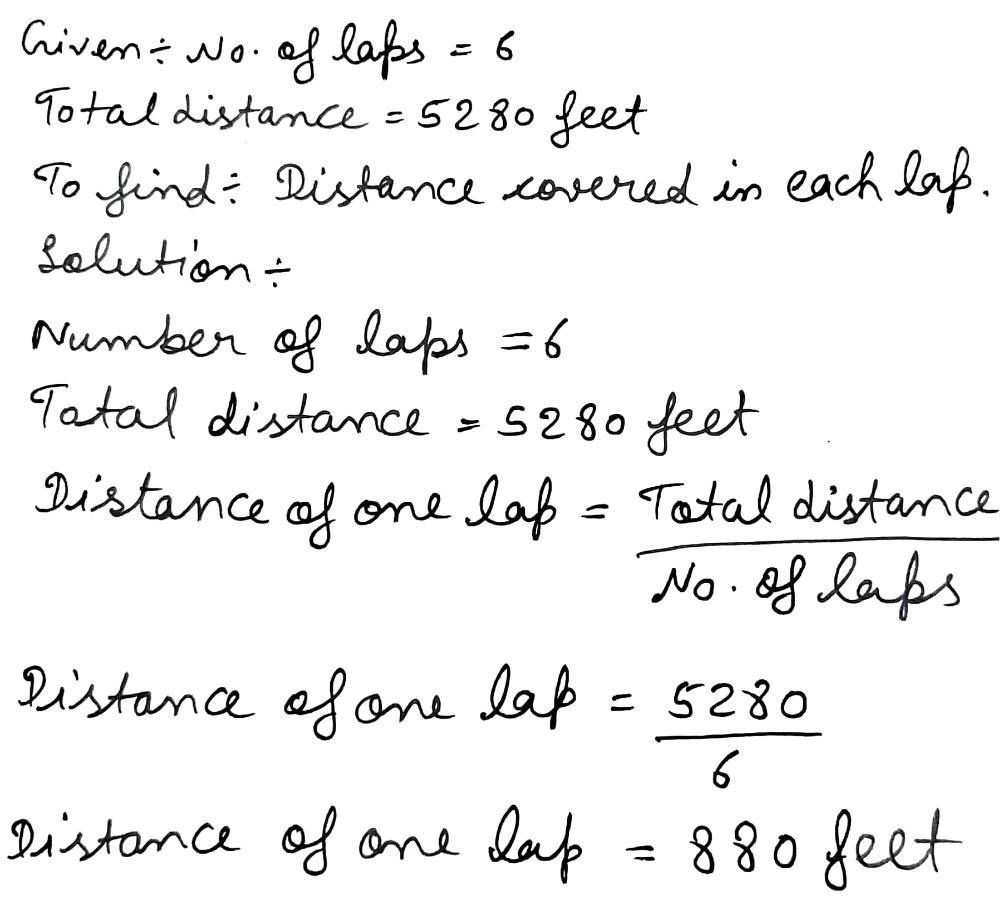 Given÷ No. of laps = 6
Total distance = 5280 feet
To find÷ Distance covered in each lap.
Solution÷
Number of laps = 6
Total distance = 5280 feet
Distance of one lap = Total distance
No. of laps
Distance of one lap = 5280
6
Distance of one lap = 880 feet